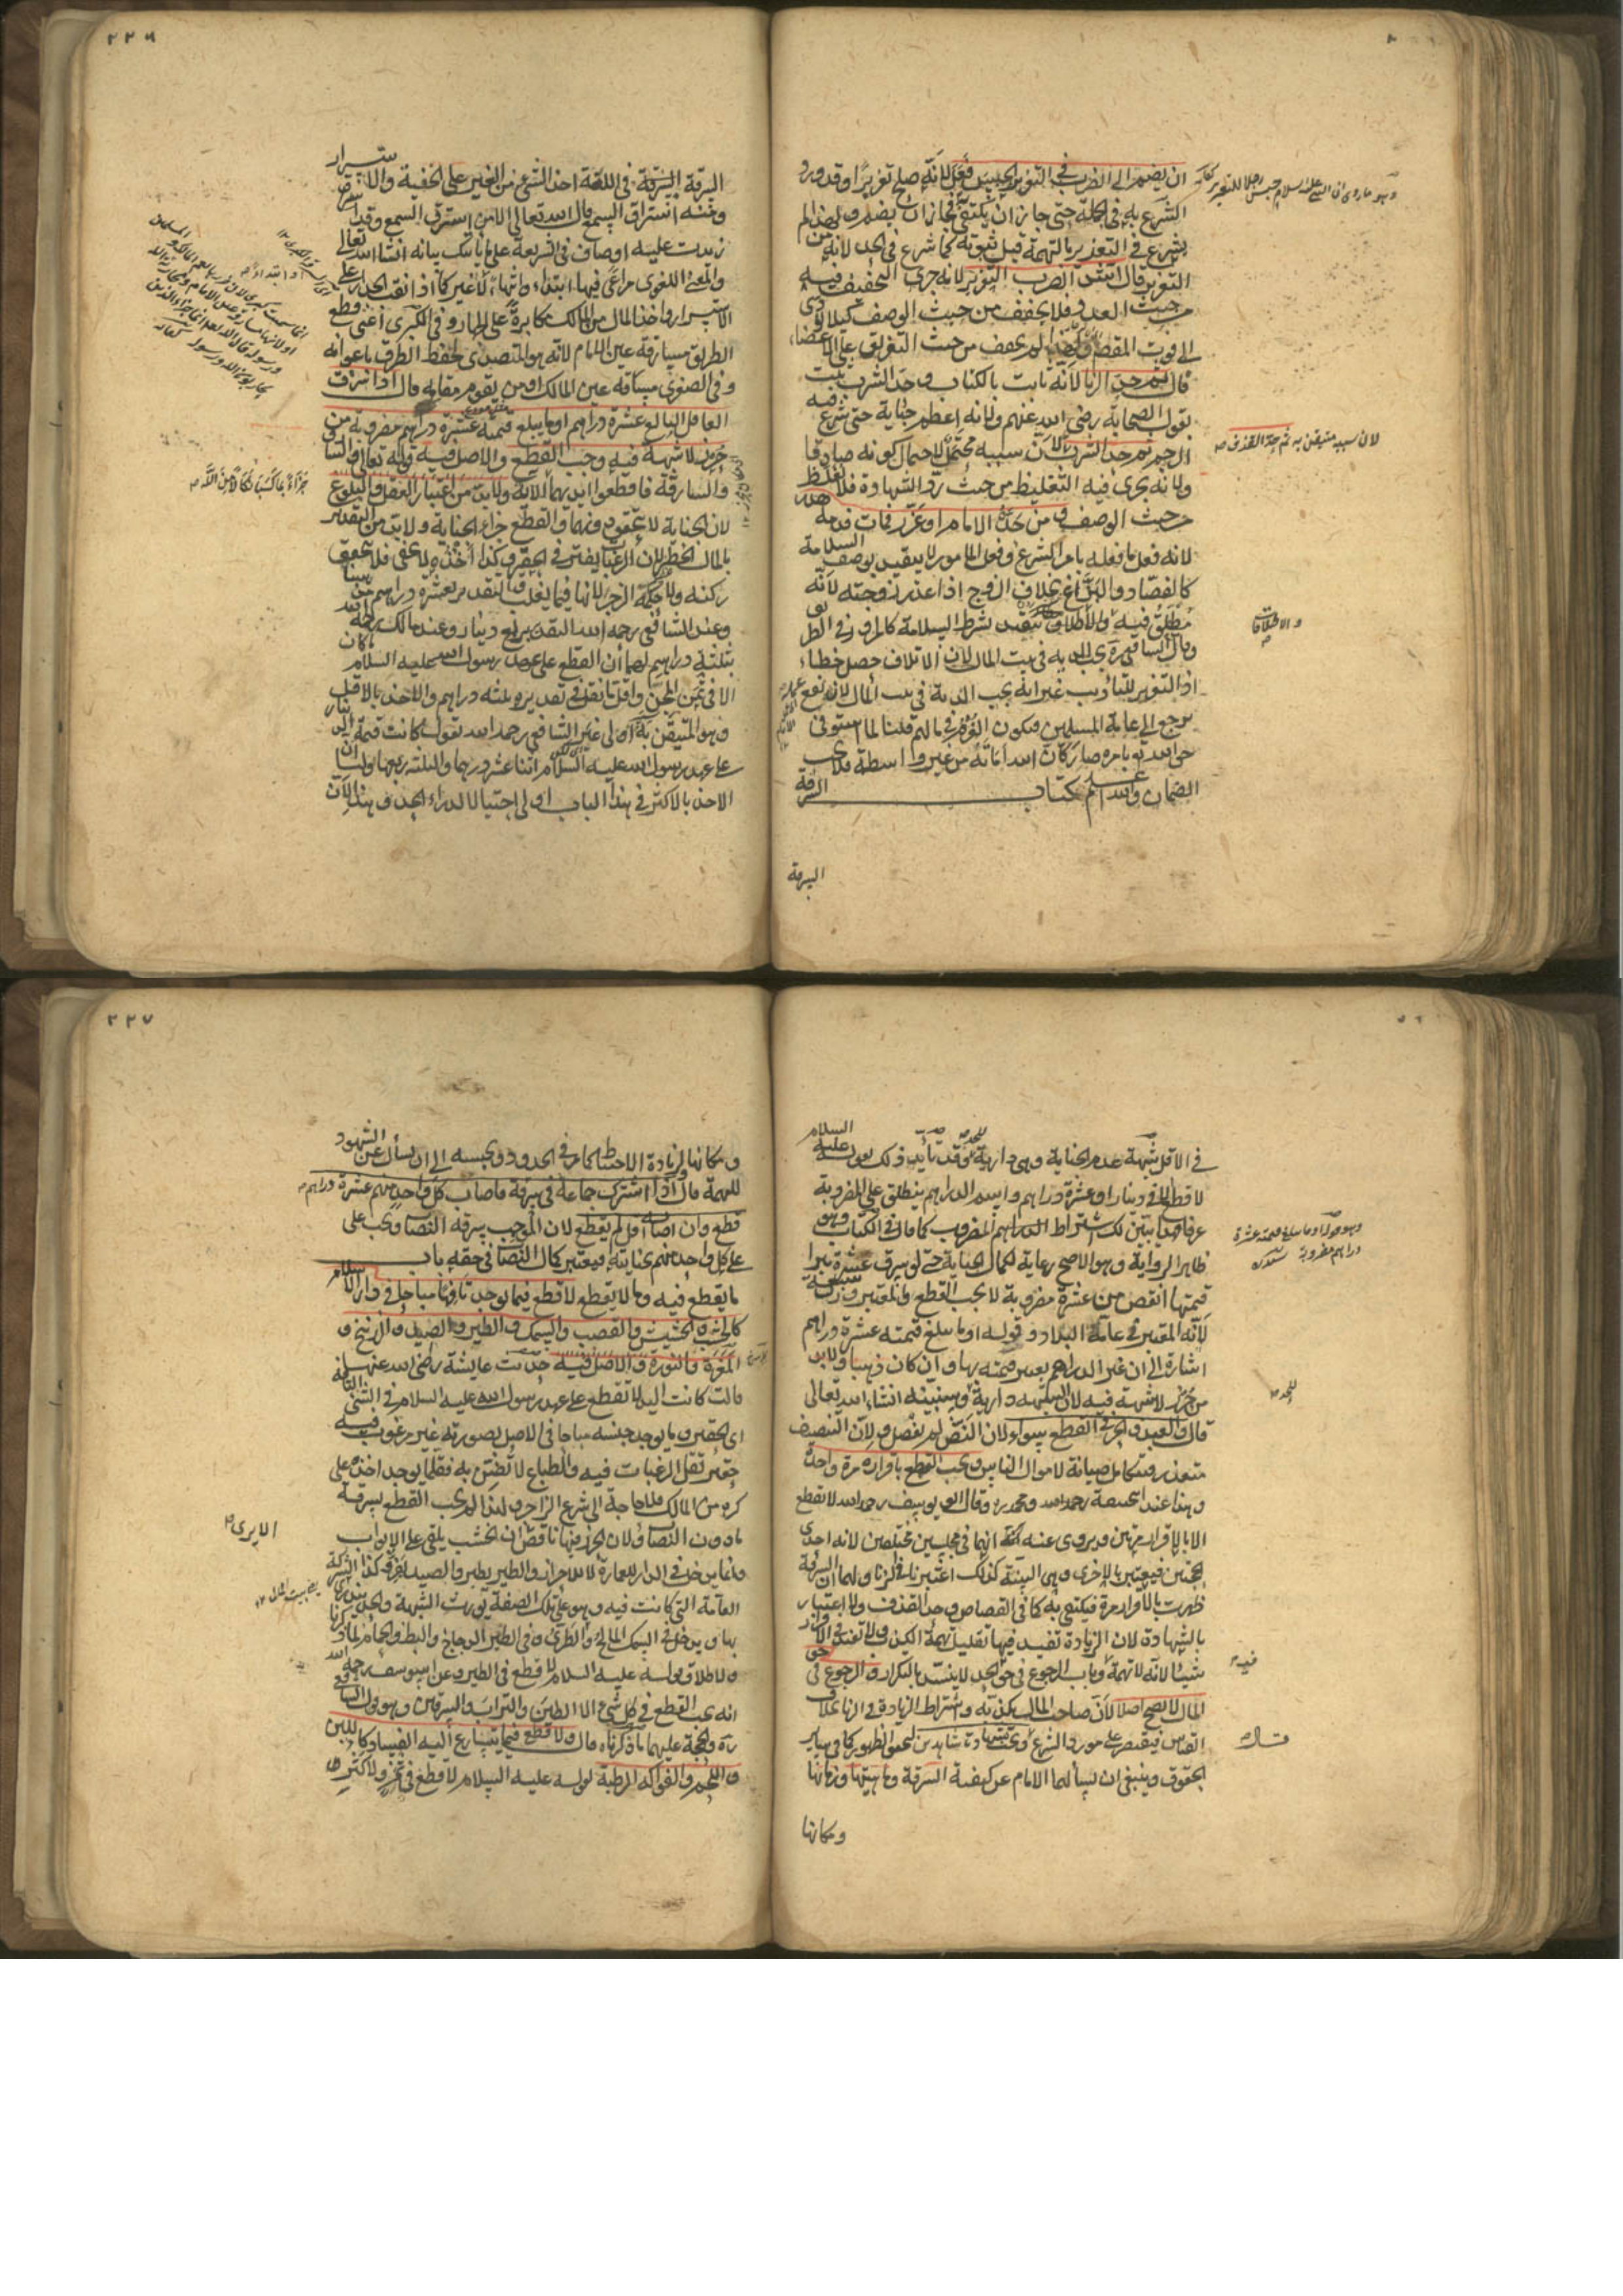 ان يضم الى الضرب في التعزير الحبس فعل لانه صلح تعزيرا وقد ورد
الشرع به في الجملة حتى جاز ان يكتفى به فجاز ان يضم ولهذا لم
يشرع في التعزير بالتهمة قبل ثبوته كما شرع في الحد لانه من
التعزير قال اشد الضرب التعزير لانه جرى التخفيف فيه
من حيث العدد فلا يخفف من حيث الوصف كيلا يؤدي
الى فوت المقصود ولهذا لم يخفف من حيث التفريق على الاعضاء
قال ثم حد الزنا لانه ثابت بالكتاب وحد الشرب يثبت
بقول الصحابة رضي الله عنهم ولانه اعظم جناية حتى شرع فيه
الرجم ثم حد الشرب لان سببه محتمل لاحتمال كونه صادقا
ولانه جرى فيه التغليظ من حيث رد الشهادة فلا يغلظ
من حيث الوصف ومن حده الامام او عزر فمات فدمه هدر
لانه فعل ما فعله بامر الشرع وفعل المامور لا يتقيد بوصف السلامة
كالفصاد والبزاغ بخلاف الزوج اذا عزر زوجته لانه
مطلق فيه والاطلاق يتقيد بشرط السلامة كالمرور في الطريق
وقال الشافعي ره يجب الدية في بيت المال لان الاتلاف حصل خطاء
اذ التعزير للتاديب غير انه يجب الدية في بيت المال لان نفع عمله
يرجع الى عامة المسلمين فيكون الغرم في مالهم قلنا لما استوفى
حق الله تع بامره صار كان الله اماته من غير واسطة فلا يجب
الضمان والله اعلم كتاب السرقة
السرقة
وهو ما روي ان النبي عليه السلام حبس رجلا للتعزير كفايه
لان سببه متيقن به ثم حد القذف ص
والاطلاقات
٢٢٦
السرقة السرقة في اللغة اخذ الشئ من الغير على الخفية والاستسرار
ومنه استراق السمع قال الله تعالى الا من استرق السمع وقد
زيدت عليه اوصاف في الشريعة على ما ياتيك بيانه انشاء الله تعالى
والمعنى اللغوي مراعى فيها ابتداء وانتهاء او ابتداء لا غير كما اذا نقب الجدار على
الاستسرار واخذ المال من المالك مكابرة على الجهار وفي الكبرى اعني قطع
الطريق مسارقة عين الامام لانه هو المتصدي لحفظ الطرق باعوانه
وفي الصغرى مسارقة عين المالك او من يقوم مقامه قال اذا سرق
العاقل البالغ عشرة دراهم او ما يبلغ قيمته عشرة دراهم مضروبة من
حرز لا شبهة فيه وجب القطع والاصل فيه قوله تعالى والسارق
والسارقة فاقطعوا ايديهما الاية ولا بد من اعتبار العقل والبلوغ
لان الجناية لا يتحقق دونهما والقطع جزاء الجناية ولا بد من التقدير
بالمال الخطير لان الرغبات يفتر في الحقير وكذا اخذه لا يخفى فلا يتحقق
ركنه ولا حكمة الزجر لانها فيما يغلب والتقدير بعشرة دراهم مذهبنا
وعند الشافعي رحمه الله التقدير بربع دينار وعند مالك رحمه الله
بثلثة دراهم لهما ان القطع على عهد رسول الله عليه السلام ما كان
الا في ثمن المجن واقل ما نقل في تقديره ثلثة دراهم والاخذ بالاقل
وهو المتيقن به اولى غير ان الشافعي رحمه الله يقول كانت قيمة الدينار
على عهد رسول الله عليه السلام اثنا عشر درهما والثلثة ربعها ولنا ان
الاخذ بالاكثر في هذا الباب اولى احتيالا لدرء الحد وهذا لان
جزاء بما كسبا نكالا من الله ص
في الاقل شبهة عدم الجناية وهي دارية للحد وقد تايد ذلك بقوله عليه السلام
لا قطع الا في دينار او عشرة دراهم واسم الدراهم ينطلق على المضروبة
عرفا فهذا يبين لك اشتراط الدراهم المضروب كما قال في الكتاب وهو
ظاهر الرواية وهو الاصح رعاية لكمال الجناية حتى لو سرق عشرة تبرا
قيمتها انقص من عشرة مضروبة لا يجب القطع والمعتبر وزن سبعة
لانه المتعين في عامة البلاد وقوله او ما يبلغ قيمته عشرة دراهم
اشارة الى ان غير الدراهم يعتبر قيمته بها وان كان ذهبا ولا بد
من حرز لا شبهة فيه لان الشبهة دارية وسنبينه انشاء الله تعالى
قال والعبد والحر في القطع سواء لان النص لم يفصل ولان التنصيف
متعذر فيتكامل صيانة لاموال الناس ويجب القطع باقراره مرة واحدة
وهذا عند ابي حنيفة رحمه الله ومحمد ره وقال ابو يوسف رحمه الله لا يقطع
الا بالاقرار مرتين ويروى عنه انهما في مجلسين مختلفين لانه احدى
الحجتين فيعتبر بالاخرى وهي البينة كذلك اعتبرنا في الزنا ولهما ان السرقة
ظهرت بالاقرار مرة فيكتفى به كما في القصاص وحد القذف ولا اعتبار
بالشهادة لان الزيادة تفيد فيها تقليل تهمة الكذب ولا تفيد في الاقرار
شيئا لانه لا تهمة وباب الرجوع في حق الحد لا ينسد بالتكرار والرجوع في حق
المال لا يصح اصلا لان صاحب المال يكذبه واشتراط الزيادة في الزنا بخلاف
القياس فيقتصر على مورد الشرع ويجب بشهادة شاهدين لتحقق الظهور كما في ساير
الحقوق وينبغي ان يسألهما الامام عن كيفية السرقة وماهيتها وزمانها
ومكانها
وهو قوله او ما يبلغ قيمته عشرة
دراهم مضروبة
للحد
فيه
٢٢٧
ومكانها لزيادة الاحتياط كما مر في الحدود ويحبسه الى ان يسأل عن الشهود
للتهمة قال اذا اشترك جماعة في سرقة فاصاب كل واحد منهم عشرة دراهم
قطع وان اصابه اقل لم يقطع لان الموجب سرقة النصاب ويجب على
على كل واحد منهم بجنايته فيعتبر كمال النصاب في حقه باب
ما يقطع فيه وما لا يقطع لا قطع فيما يوجد تافها مباحا في دار الاسلام
كالخشب والحشيش والقصب والسمك والطير والصيد والزرنيخ و
المغرة والنورة والاصل فيه حديث عايشة رضي الله عنها
قالت كانت اليد لا تقطع على عهد رسول الله عليه السلام في الشئ التافه
اي الحقير وما يوجد جنسه مباحا في الاصل بصورته غير مرغوب فيه
حقير تقل الرغبات فيه والطباع لا تضن به فقلما يوجد اخذه على
كره من المالك فلا حاجة الى شرع الزاجر ولهذا لم يجب القطع بسرقة
ما دون النصاب ولان الحرز فيها ناقص الا يرى ان الخشب يلقى على الابواب
وانما يدخل في الدار للعمارة لا للاحراز والطير يطير والصيد يفر وكذا الشركة
العامة التي كانت فيه وهو على تلك الصفة يورث الشبهة والحد يندرئ
بها ويدخل في السمك المالح والطري وفي الطير الدجاج والبط والحمام لما ذكرنا
ولاطلاق قوله عليه السلام لا قطع في الطير وعن ابي يوسف رحمه الله
انه يجب القطع في كل شئ الا الطين والتراب والسرقين وهو قول الشافعي
ره والحجة عليهما ما ذكرناه قال ولا قطع فيما يتسارع اليه الفساد كاللبن
واللحم والفواكه الرطبة لقوله عليه السلام لا قطع في ثمر ولا كثر و
الا يرى